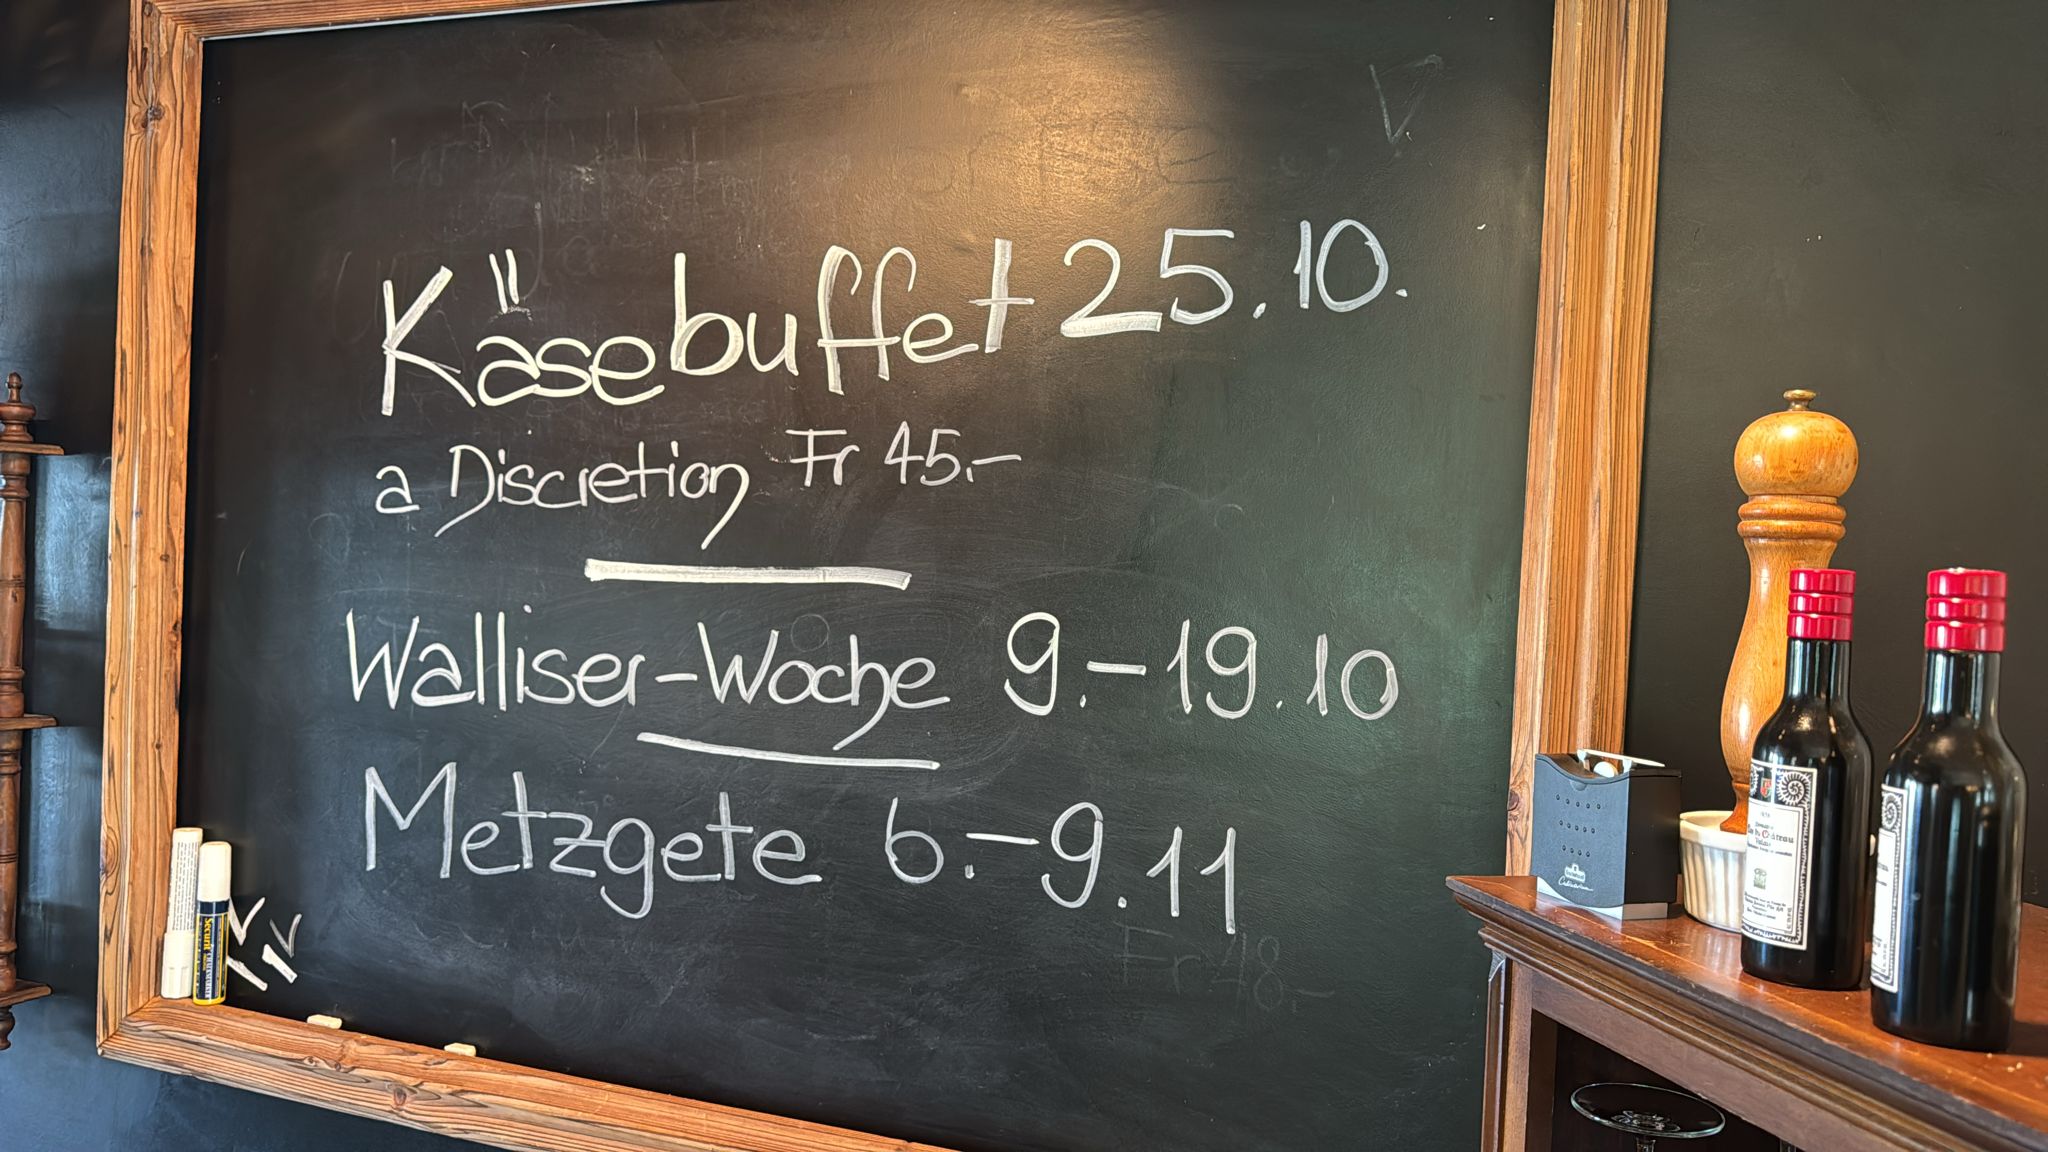 Käsebuffet 25.10.
a Discretion Fr 45.-
Walliser-Woche 9.-19.10
Metzgete 6.-9.11
Fr 48.-
Securit